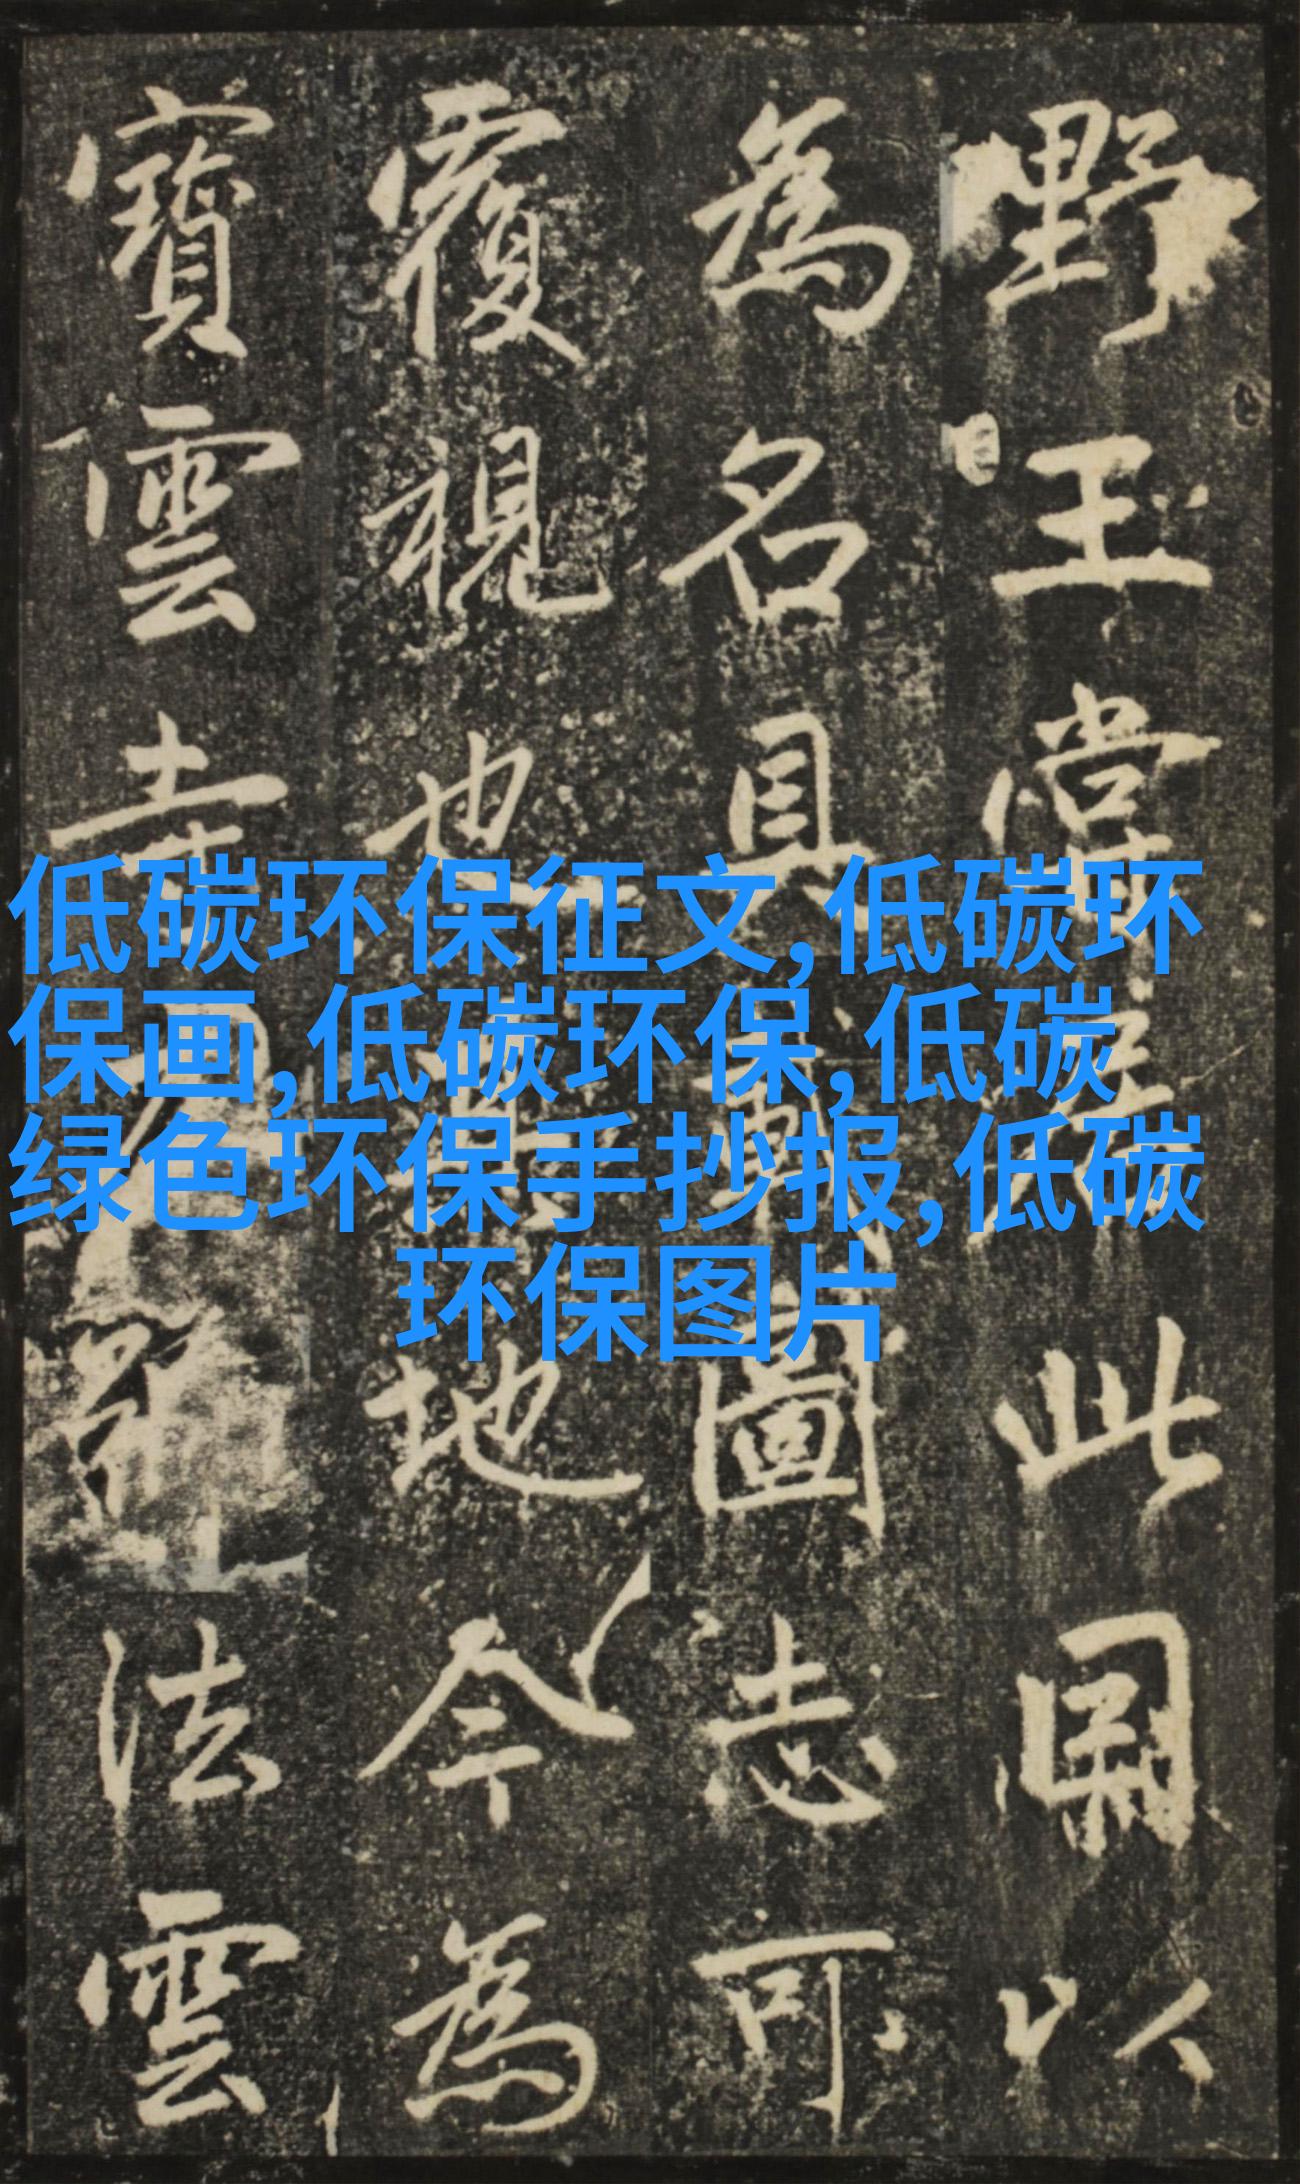 低碳环保征文,低碳环
保画,低碳环保,低碳
绿色环保手抄报,低碳
环保图片
野王嘗居此以
為名具載圖志可
覆視也其地今為
寶雲寺法雲